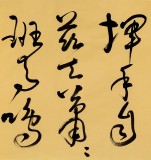 揮手自
茲去蕭々
班馬鳴